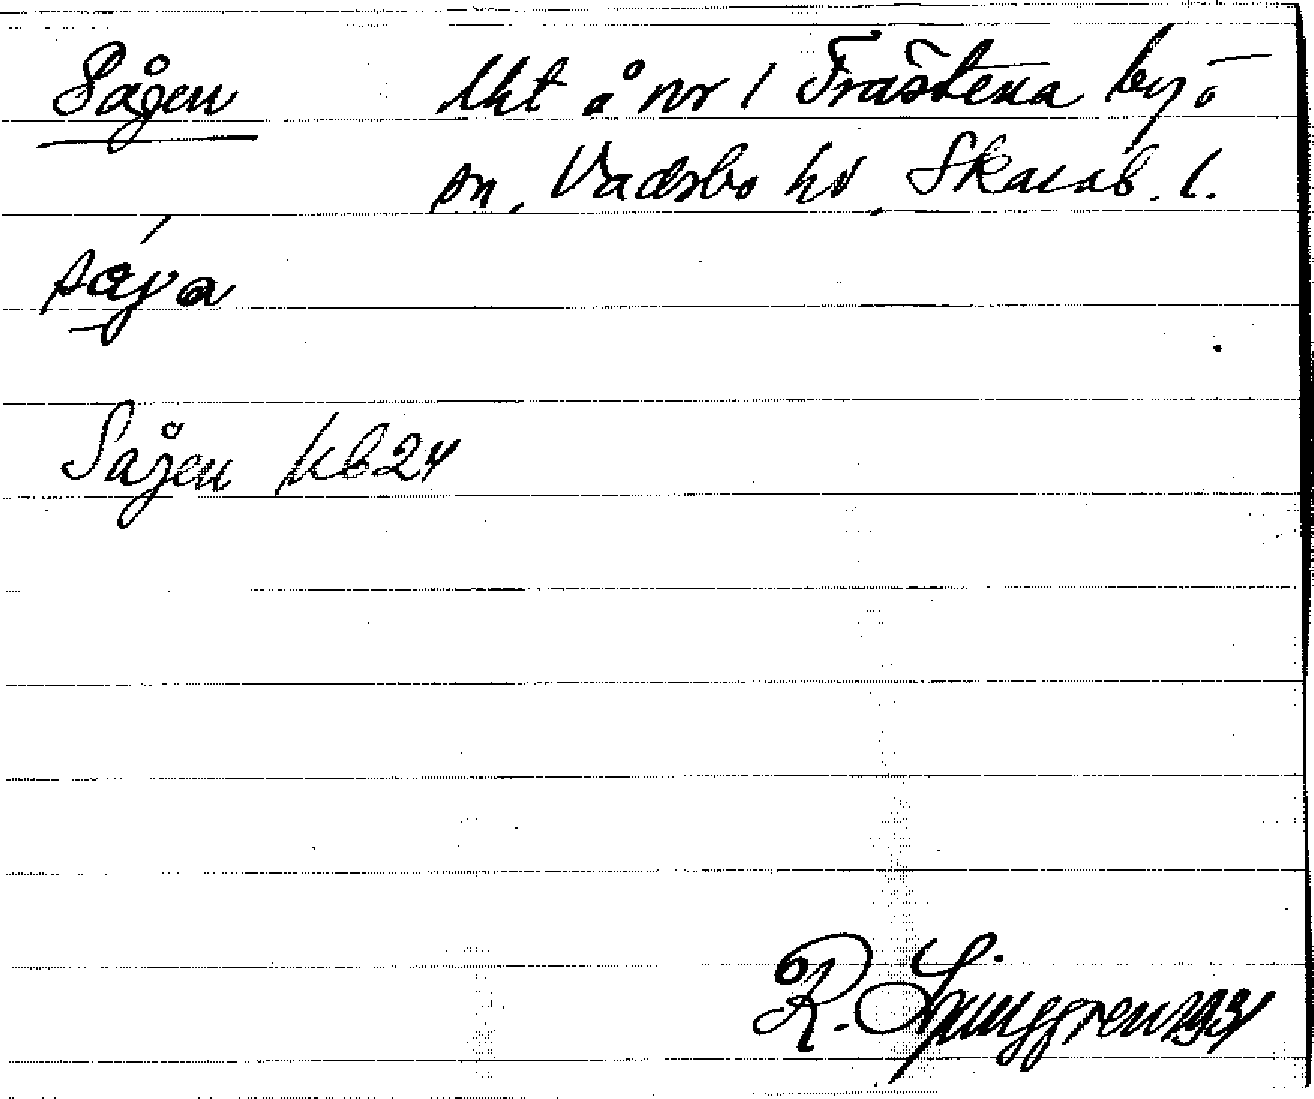 Sågen lht å nr 1 Fraštena by,
sn, Vadsbo hd, Skarab. l.
såga
Sågen kb24
R. Ljunggren